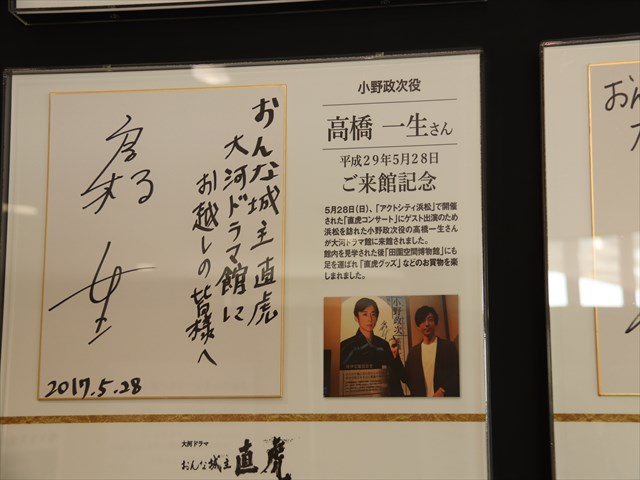 おんな城主 直虎
大河ドラマ館に
お越しの皆様へ
2017.5.28
小野政次役
高橋 一生さん
平成29年5月28日
ご来館記念
5月28日(日)、「アクトシティ浜松」で開催
された「直虎コンサート」にゲスト出演のため
浜松を訪れた小野政次役の高橋一生さん
が大河ドラマ館に来館されました。
館内を見学された後「田園空間博物館」にも
足を運ばれ「直虎グッズ」などのお買物を楽
しまれました。
小野政次
大河ドラマ
おんな城主 直虎
おん